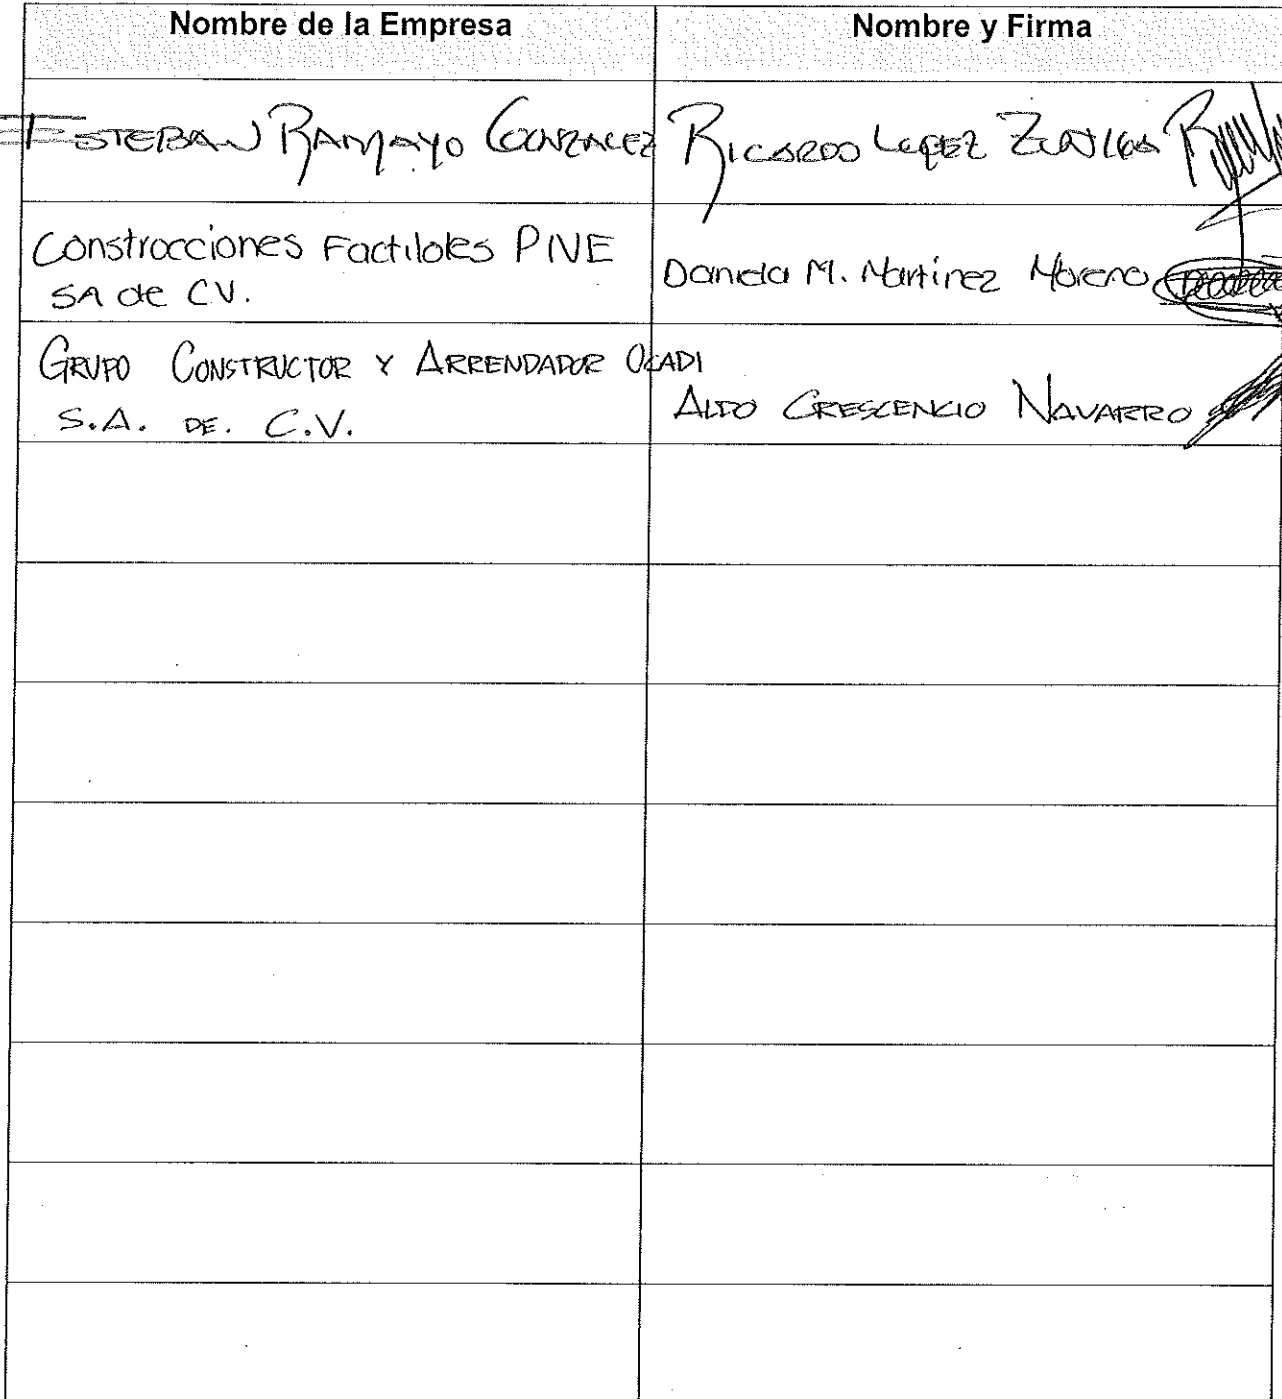 Nombre de la Empresa
Nombre y Firma
ESTEBAN RAMAYO GONZALEZ
RICARDO LOPEZ ZUÑIGA
Construcciones Factibles PNE
SA de CV.
Daniela M. Martinez Moreno
GRUPO CONSTRUCTOR Y ARRENDADOR OCADI
S.A. DE. C.V.
ALDO CRESCENCIO NAVARRO